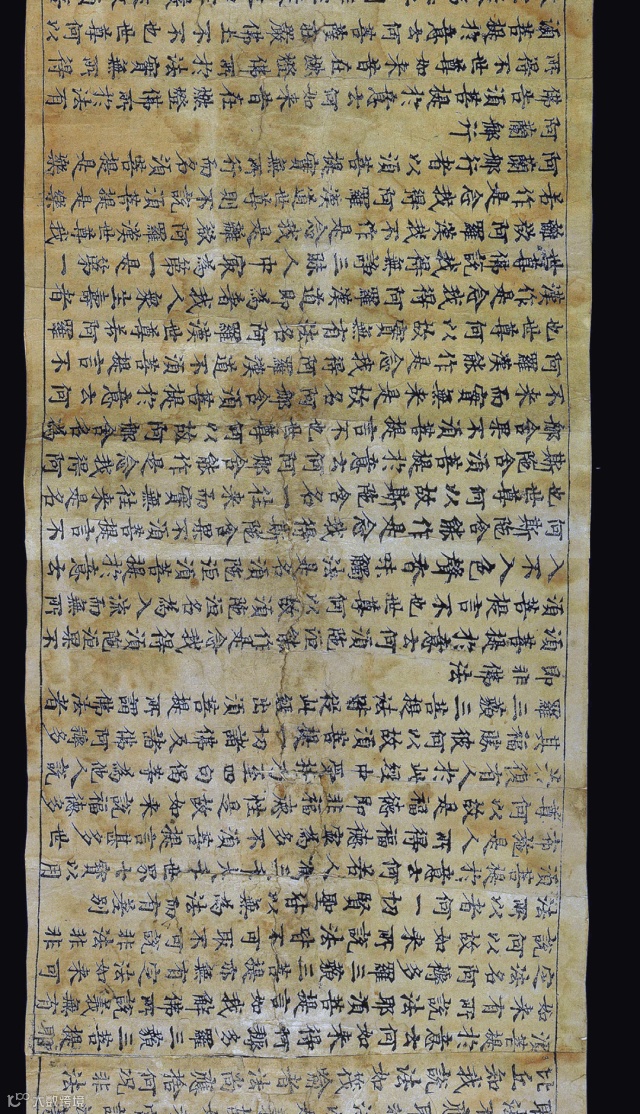 比丘知我說法如筏喻者法尚應捨何況非法
須菩提於意云何如來得阿耨多羅三藐三菩提耶
如來有所說法耶須菩提言如我解佛所說義無有
定法名阿耨多羅三藐三菩提亦無有定法如來可
說何以故如來所說法皆不可取不可說非法非非
法所以者何一切賢聖皆以無為法而有差別
須菩提於意云何若人滿三千大千世界七寶以用
布施是人所得福德寧為多不須菩提言甚多世
尊何以故是福德即非福德性是故如來說福德多
若復有人於此經中受持乃至四句偈等為他人說
其福勝彼何以故須菩提一切諸佛及諸佛阿耨多
羅三藐三菩提法皆從此經出須菩提所謂佛法者
即非佛法
須菩提於意云何須陀洹能作是念我得須陀洹果不
須菩提言不也世尊何以故須陀洹名為入流而無所
入不入色聲香味觸法是名須陀洹須菩提於意云
何斯陀含能作是念我得斯陀含果不須菩提言不
也世尊何以故斯陀含名一往來而實無往來是名
斯陀含須菩提於意云何阿那含能作是念我得阿
那含果不須菩提言不也世尊何以故阿那含名為
不來而實無來是故名阿那含須菩提於意云何
阿羅漢能作是念我得阿羅漢道不須菩提言不
也世尊何以故實無有法名阿羅漢世尊若阿羅
漢作是念我得阿羅漢道即為著我人眾生壽者
世尊佛說我得無諍三昧人中最為第一是第一
離欲阿羅漢我不作是念我是離欲阿羅漢世尊我
若作是念我得阿羅漢道世尊則不說須菩提是樂
阿蘭那行者以須菩提實無所行而名須菩提是樂
阿蘭那行
佛告須菩提於意云何如來昔在燃燈佛所於法有
所得不世尊如來昔在燃燈佛所於法實無所得
須菩提於意云何菩薩莊嚴佛土不不也世尊何以
大数跨境